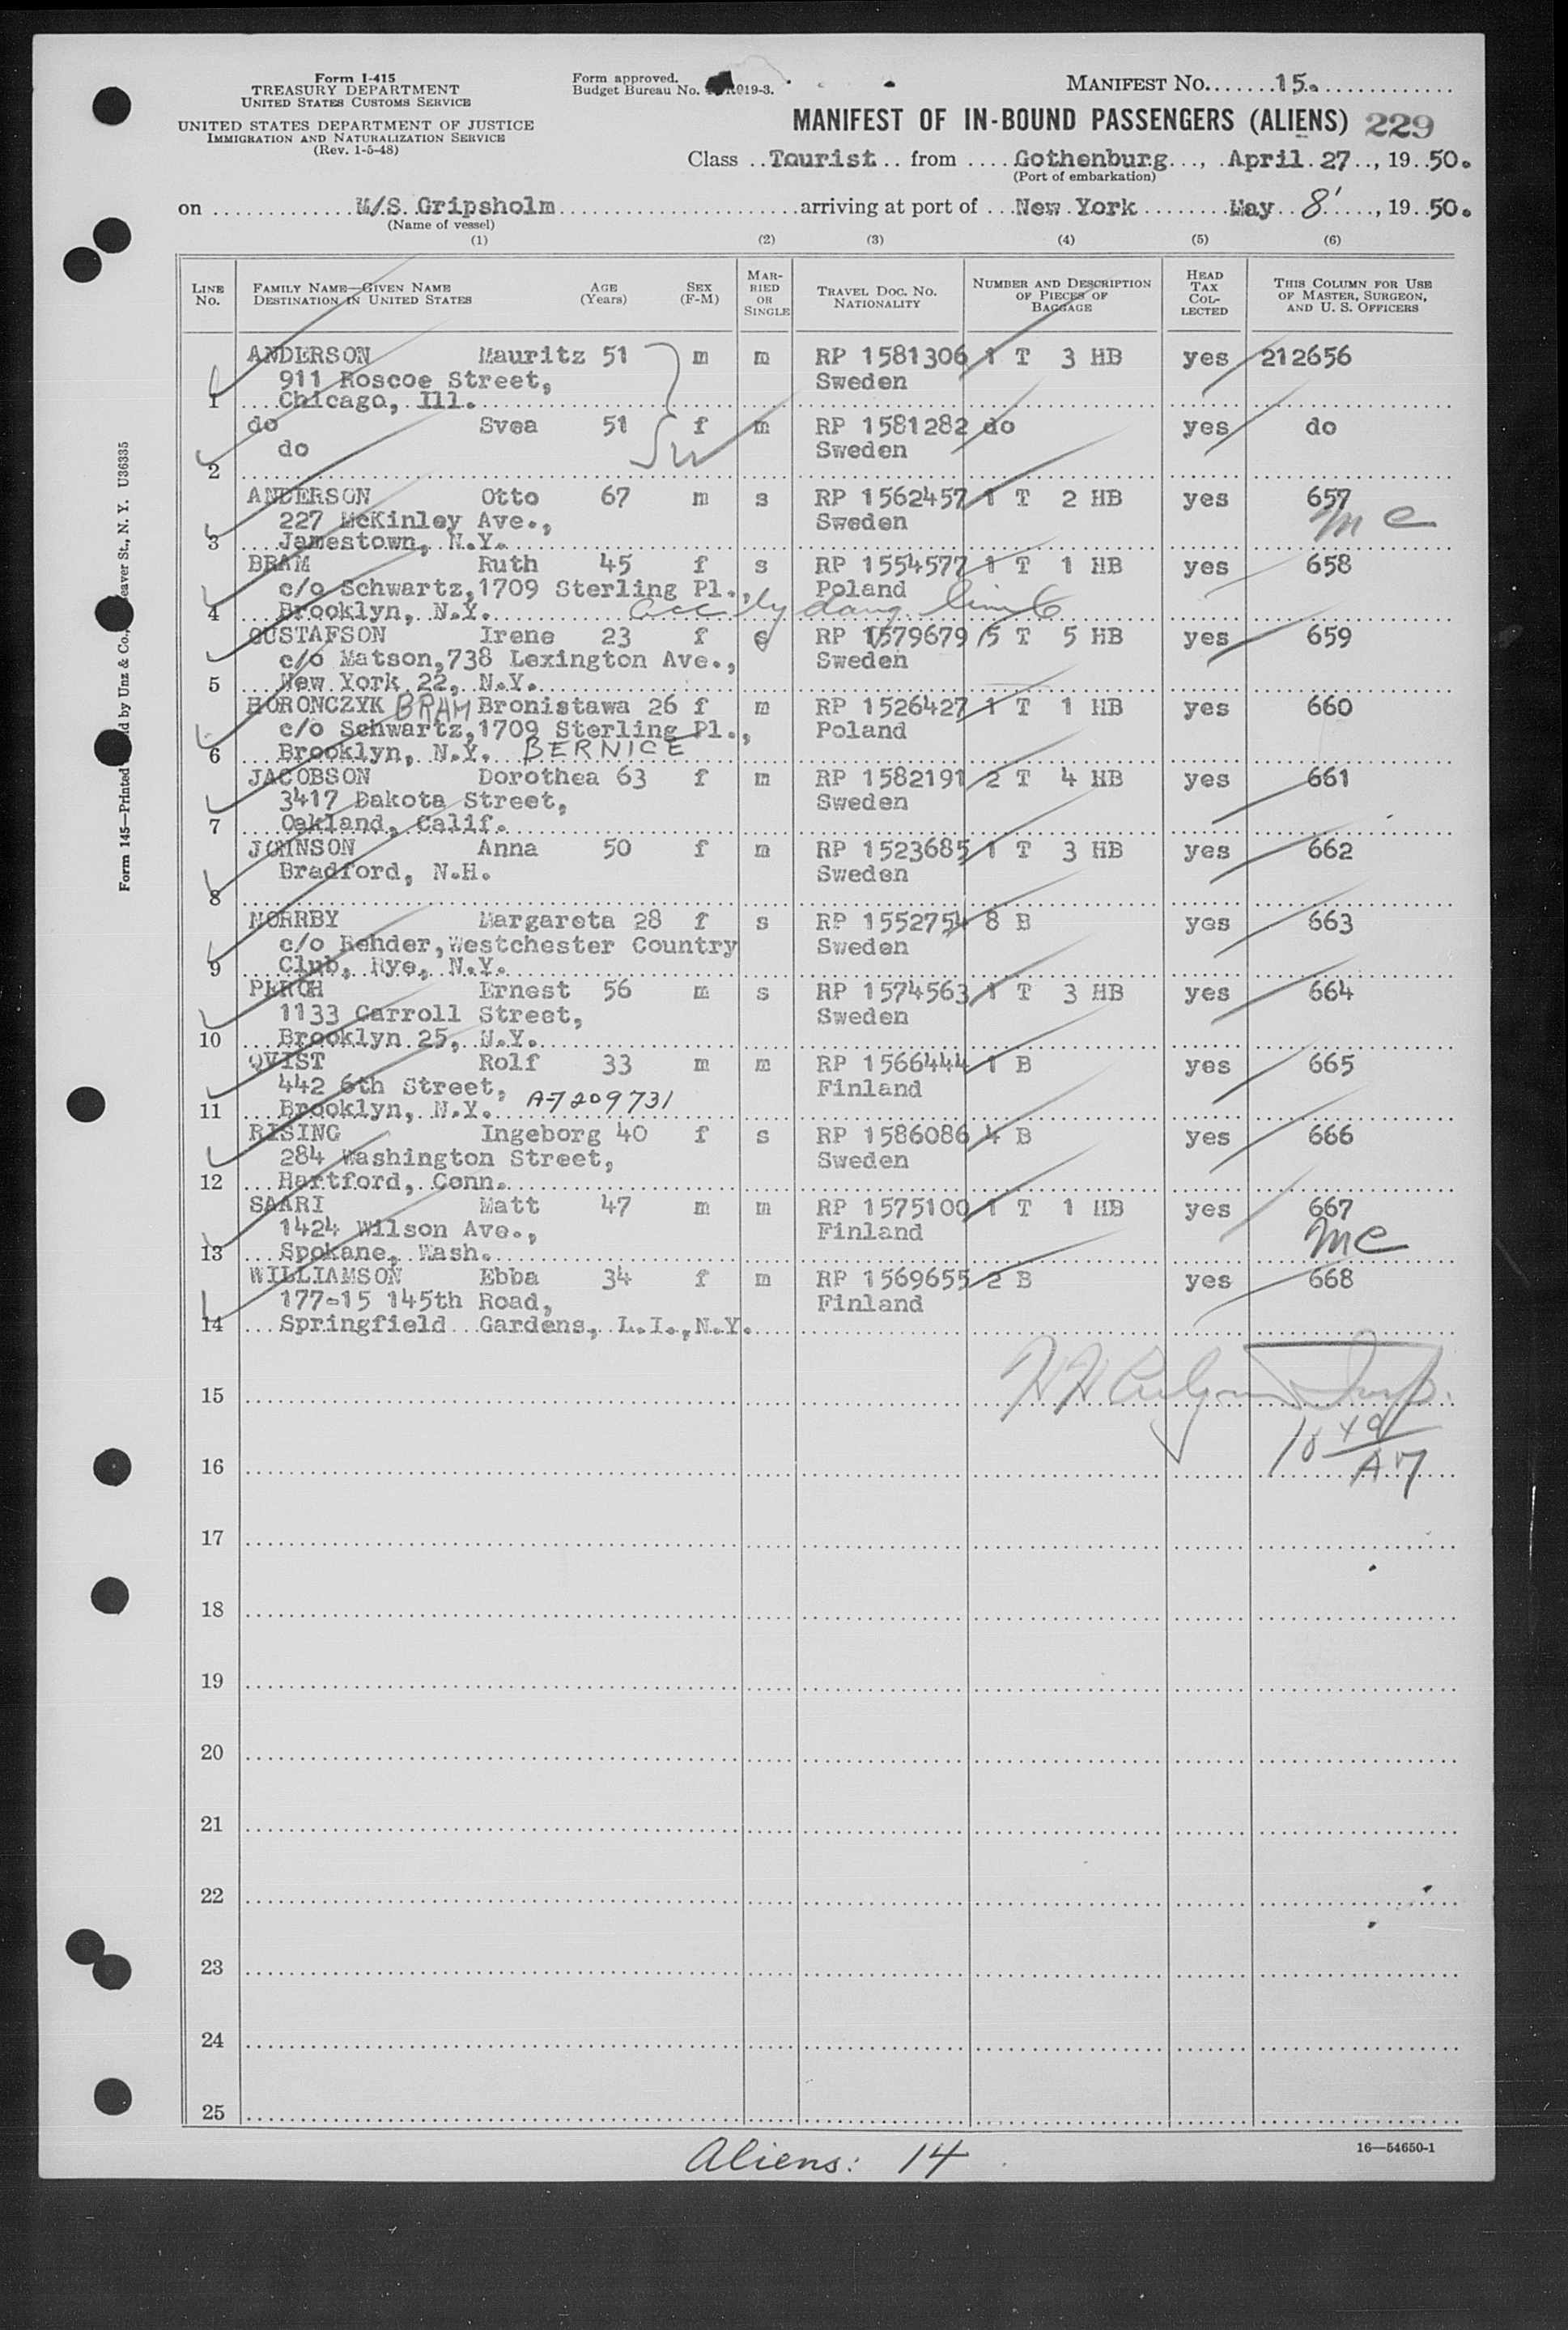 Form I-415
TREASURY DEPARTMENT
UNITED STATES CUSTOMS SERVICE
UNITED STATES DEPARTMENT OF JUSTICE
IMMIGRATION AND NATURALIZATION SERVICE
(Rev. 1-5-48)
Form approved.
Budget Bureau No. R019-3.
MANIFEST No. 15.
MANIFEST OF IN-BOUND PASSENGERS (ALIENS) 229
Class Tourist from Gothenburg, April 27, 1950.
(Port of embarkation)
on M/S Gripsholm arriving at port of New York May 8', 1950.
(Name of vessel)
(1) (2) (3) (4) (5) (6)
LINE No. FAMILY NAME—GIVEN NAME DESTINATION IN UNITED STATES AGE (Years) SEX (F-M) MARRIED OR SINGLE TRAVEL DOC. NO. NATIONALITY NUMBER AND DESCRIPTION OF PIECES OF BAGGAGE HEAD TAX COLLECTED THIS COLUMN FOR USE OF MASTER, SURGEON, AND U. S. OFFICERS
ANDERSON Mauritz 51 m m RP 1581306 1 T 3 HB yes 212656
911 Roscoe Street, Sweden
1 Chicago, Ill.
do Svea 51 f m RP 1581282 do yes do
do Sweden
2
ANDERSON Otto 67 m s RP 1562457 1 T 2 HB yes 657
227 McKinley Ave., Sweden mc
3 Jamestown, N.Y.
BRAM Ruth 45 f s RP 1554577 1 T 1 HB yes 658
c/o Schwartz, 1709 Sterling Pl., Poland
4 Brooklyn, N.Y.
GUSTAFSON Irene 23 f s RP 1579679 5 T 5 HB yes 659
c/o Matson, 738 Lexington Ave., Sweden
5 New York 22, N.Y.
BORONCZYK BRAM Bronistawa 26 f m RP 1526427 1 T 1 HB yes 660
c/o Schwartz, 1709 Sterling Pl., Poland
6 Brooklyn, N.Y. BERNICE
JACOBSON Dorothea 63 f m RP 1582191 2 T 4 HB yes 661
3417 Dakota Street, Sweden
7 Oakland, Calif.
JOHNSON Anna 50 f m RP 1523685 1 T 3 HB yes 662
Bradford, N.H. Sweden
8
NORRBY Margareta 28 f s RP 1552754 8 B yes 663
c/o Rehder, Westchester Country Sweden
9 Club, Rye, N.Y.
PERCH Ernest 56 m s RP 1574563 1 T 3 HB yes 664
1133 Carroll Street, Sweden
10 Brooklyn 25, N.Y.
QVIST Rolf 33 m m RP 1566444 1 B yes 665
442 6th Street, Finland
11 Brooklyn, N.Y. A-7209731
RISING Ingeborg 40 f s RP 1586086 4 B yes 666
284 Washington Street, Sweden
12 Hartford, Conn.
SAARI Matt 47 m m RP 1575100 1 T 1 HB yes 667
1424 Wilson Ave., Finland mc
13 Spokane, Wash.
WILLIAMSON Ebba 34 f m RP 1569655 2 B yes 668
177-15 145th Road, Finland
14 Springfield Gardens, L.I., N.Y.
15
16
17
18
19
20
21
22
23
24
25
Aliens: 14
16—54650-1
Form 145—Printed and by Unz & Co., Beaver St., N. Y. U36335